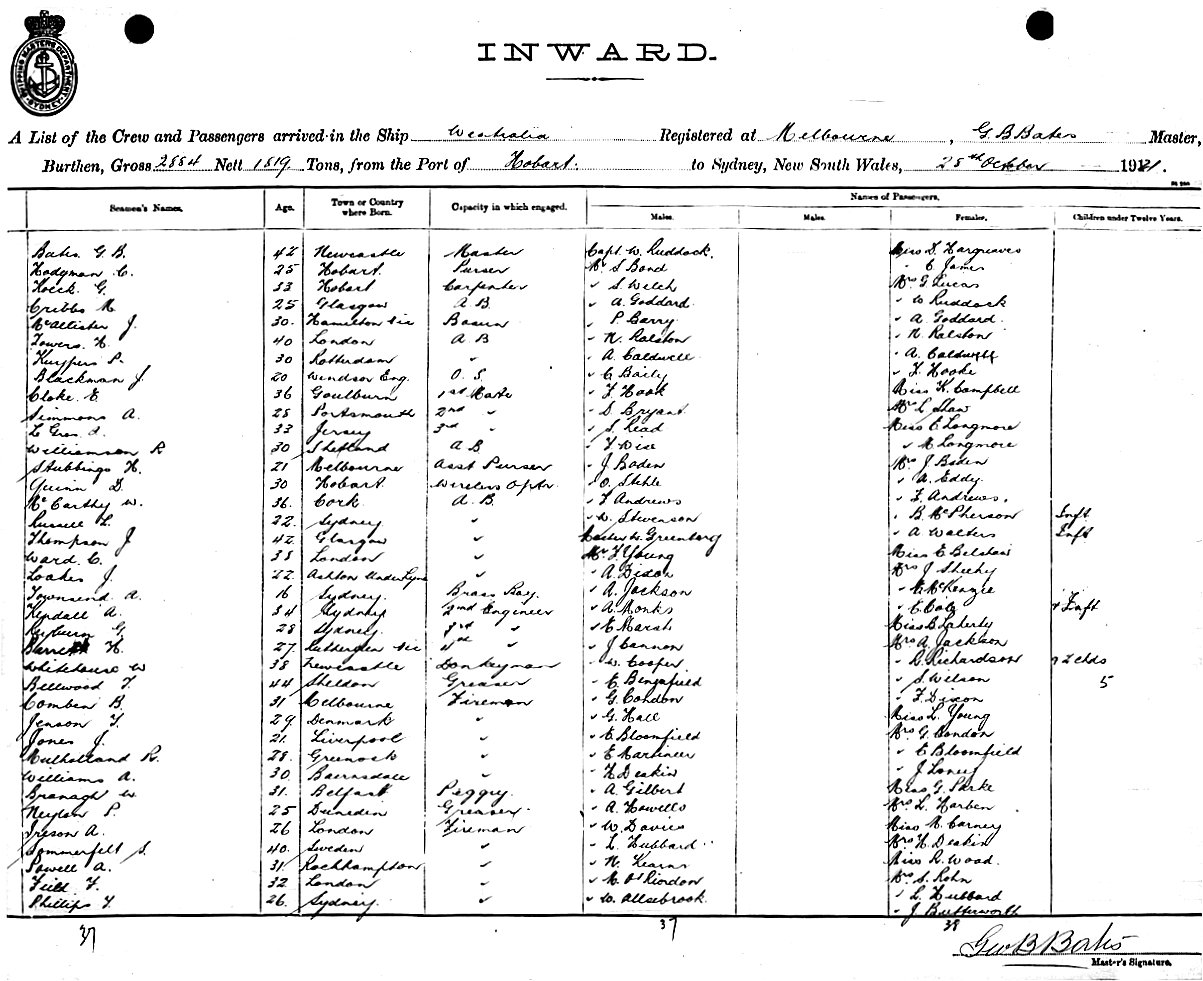 SHIPPING MASTERS DEPARTMENT SYDNEY
INWARD.
A List of the Crew and Passengers arrived in the Ship Westralia Registered at Melbourne, G B Bates Master,
Burthen, Gross 2884 Nett 1819 Tons, from the Port of Hobart. to Sydney, New South Wales, 28th October 1921.
Names of Passengers.
Seamen's Names. Age. Town or Country where Born. Capacity in which engaged. Males. Males. Females. Children under Twelve Years.
Bates G B. 42 Newcastle Master Capt. W. Ruddock. Miss D. Hargreaves
Hodgman C. 25 Hobart. Purser Mr S Bond " C James
Hoeck G. 33 Hobart Carpenter " S Welch Mrs G Lucas
Cribbs M 25 Glasgow A B " A. Goddard " W Ruddock
McAllister J. 30. Hamilton Vic Bosun " P. Barry " A Goddard.
Towers H. 40 London A B " N. Ralston " N. Ralston
Kuypers P. 30 Rotterdam " " A Caldwell " A. Caldwell
Blackman J. 20 Windsor Eng. O. S. " C Baily " F. Hooke
Cloke. E 36 Goulburn 1st Mate " F Hook Miss K. Campbell
Simmons A. 28 Portsmouth 2nd " " D Bryant Mrs L Shaw
Le Gros. 33 Jersey 3rd " " S. Read Miss E Longmore
Williamson R 30 Shetland A B " F Wise " M Longmore
Stubbings H. 21 Melbourne Asst Purser " J Boden Mrs J Boden
Quinn D. 30 Hobart Wireless Optr. " O. Stehle " A. Eddy
McCarthy W. 36. Cork A. B. " F Andrews " F. Andrews.
Russell L. 22. Sydney " " W. Stevenson " B. McPherson Inft
Thompson J 42 Glasgow " Master W. Greenberg " A Walters Inft
Ward. C. 38 London " Mr F Young Miss E Belstaw
Loakes J. 22 Ashton Under Lyne " " A. Dixon Mrs J Sheehy
Townsend A. 16 Sydney. Brass Boy. " A. Jackson " McKenzie
Kendall A. 34 Sydney 2nd Engineer " A Monks " E Inft
G. 28 Sydney. 3rd " " E Marsh Miss B Laherty
Barrett H. 27 Rutherglen Vic 4th " " J Cannon Mrs A. Jackson
Whitehouse W 38 Newcastle Donkeyman " W. Cooper " R. Richardson 2 chds
Bellwood T. 44 Sheldon Greaser " E Bengafield " S Wilson 5
Comben B. 31 Melbourne Fireman " G. Condon " F. Dixon
Jenson F. 29 Denmark " " G Hall Miss L. Young
Jones J. 21. Liverpool " " E Bloomfield Mrs G. Condon
Mulholland R. 28. Greenock " " E Martineer " E Bloomfield
Williams A. 30. Bairnsdale " " H Deakin " J Loney
Branagh W 31. Belfast Peggy. " A Gilbert Miss G. Parke
P. 25 Dunedin Greaser " A Howells Mrs L. Harben
Ireson A. 26 London Fireman " W. Davies Miss M. Carney
Sommerfelt S. 40. Sweden " " L. Hubbard Mrs H Deakin
Powell A. 31. Rockhampton " " N. Kearns Miss R. Wood.
Field F. 32 London " " M. O'Riordon Mrs S. Rohn
Phillips F. 26. Sydney. " " W. Allsebrook. " L. Hubbard
" J Butterworth
37 37 38
Geo B Bates
Master's Signature.